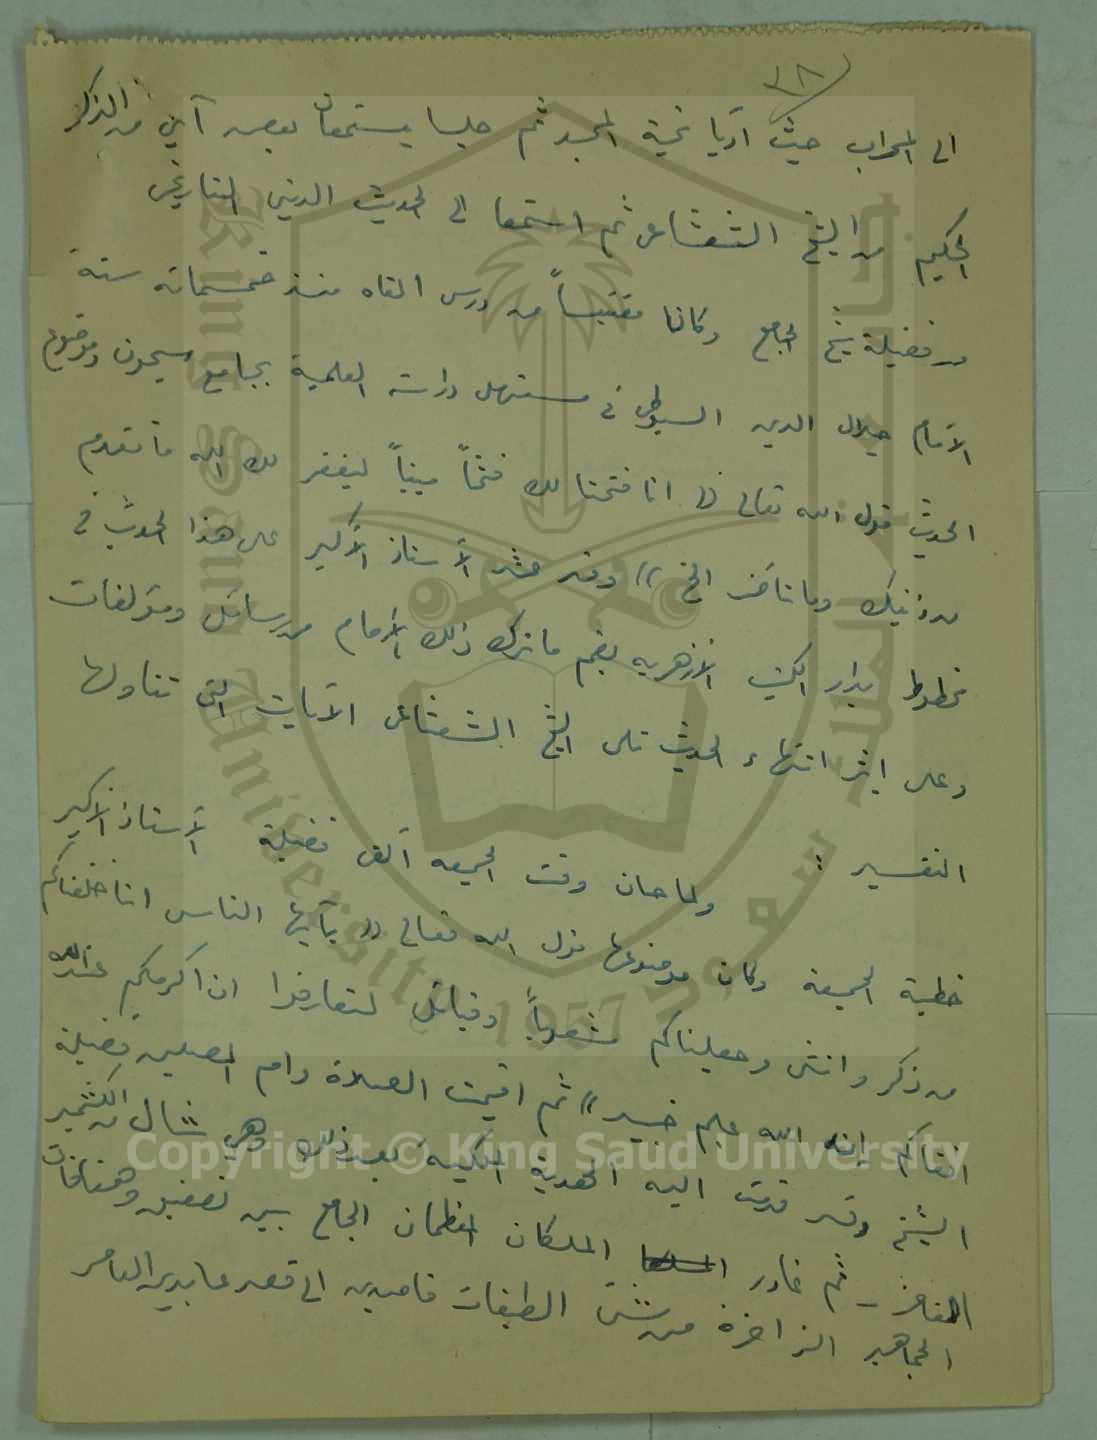 ٣٨
الى المحراب حيث اديا تحية المسجد ثم جلسا يستمعان بعض آي من الذكر
الحكيم من الشيخ الشعشاعى ثم استمعا الى الحديث الدينى التاريخى
من فضيلة شيخ الجامع وكانا مقتبساً من درس القاه منذ خمسمائة سنة
الامام جلال الدين السيوطى فى مستهل دراسته العلمية بجامع شيخون وموضوع
الحديث قول الله تعالى (( انا فتحنا لك فتحاً مبيناً ليغفر لك الله ما تقدم
من ذنبك وما تأخر الخ )) وقد عثر الأستاذ الأكبر على هذا الحديث فى
مخطوط بدار الكتب الأزهرية يضم ما ترك ذلك الأمام من رسائل ومؤلفات
وعلى إثر انتهاء الحديث تلى الشيخ الشعشاعى الآيات التى تناولها
التفسير : ولما حان وقت الجمعه ألقى فضيلة الأستاذ الأكبر
خطبة الجمعة وكان موضوعها قول الله تعالى (( يأيها الناس انا خلقناكم
من ذكر وانثى وجعلناكم شعوباً وقبائل لتعارفوا ان اكرمكم عند الله
اتقاكم إن الله عليم خبير )) ثم اقيمت الصلاة وام المصلين فضيلة
الشيخ وقد قدمت اليه الهدية الملكية بعد ذلك وهي شال من الكشمير
الفاخر – ثم غادر الملكان العظيمان الجامع بين تصفيق وهتافات
الجماهير الزاخرة من شتى الطبقات قاصدين الى قصر عابدين العامر
King Saud University
جامعة الملك سعود
1957
Copyright © King Saud University